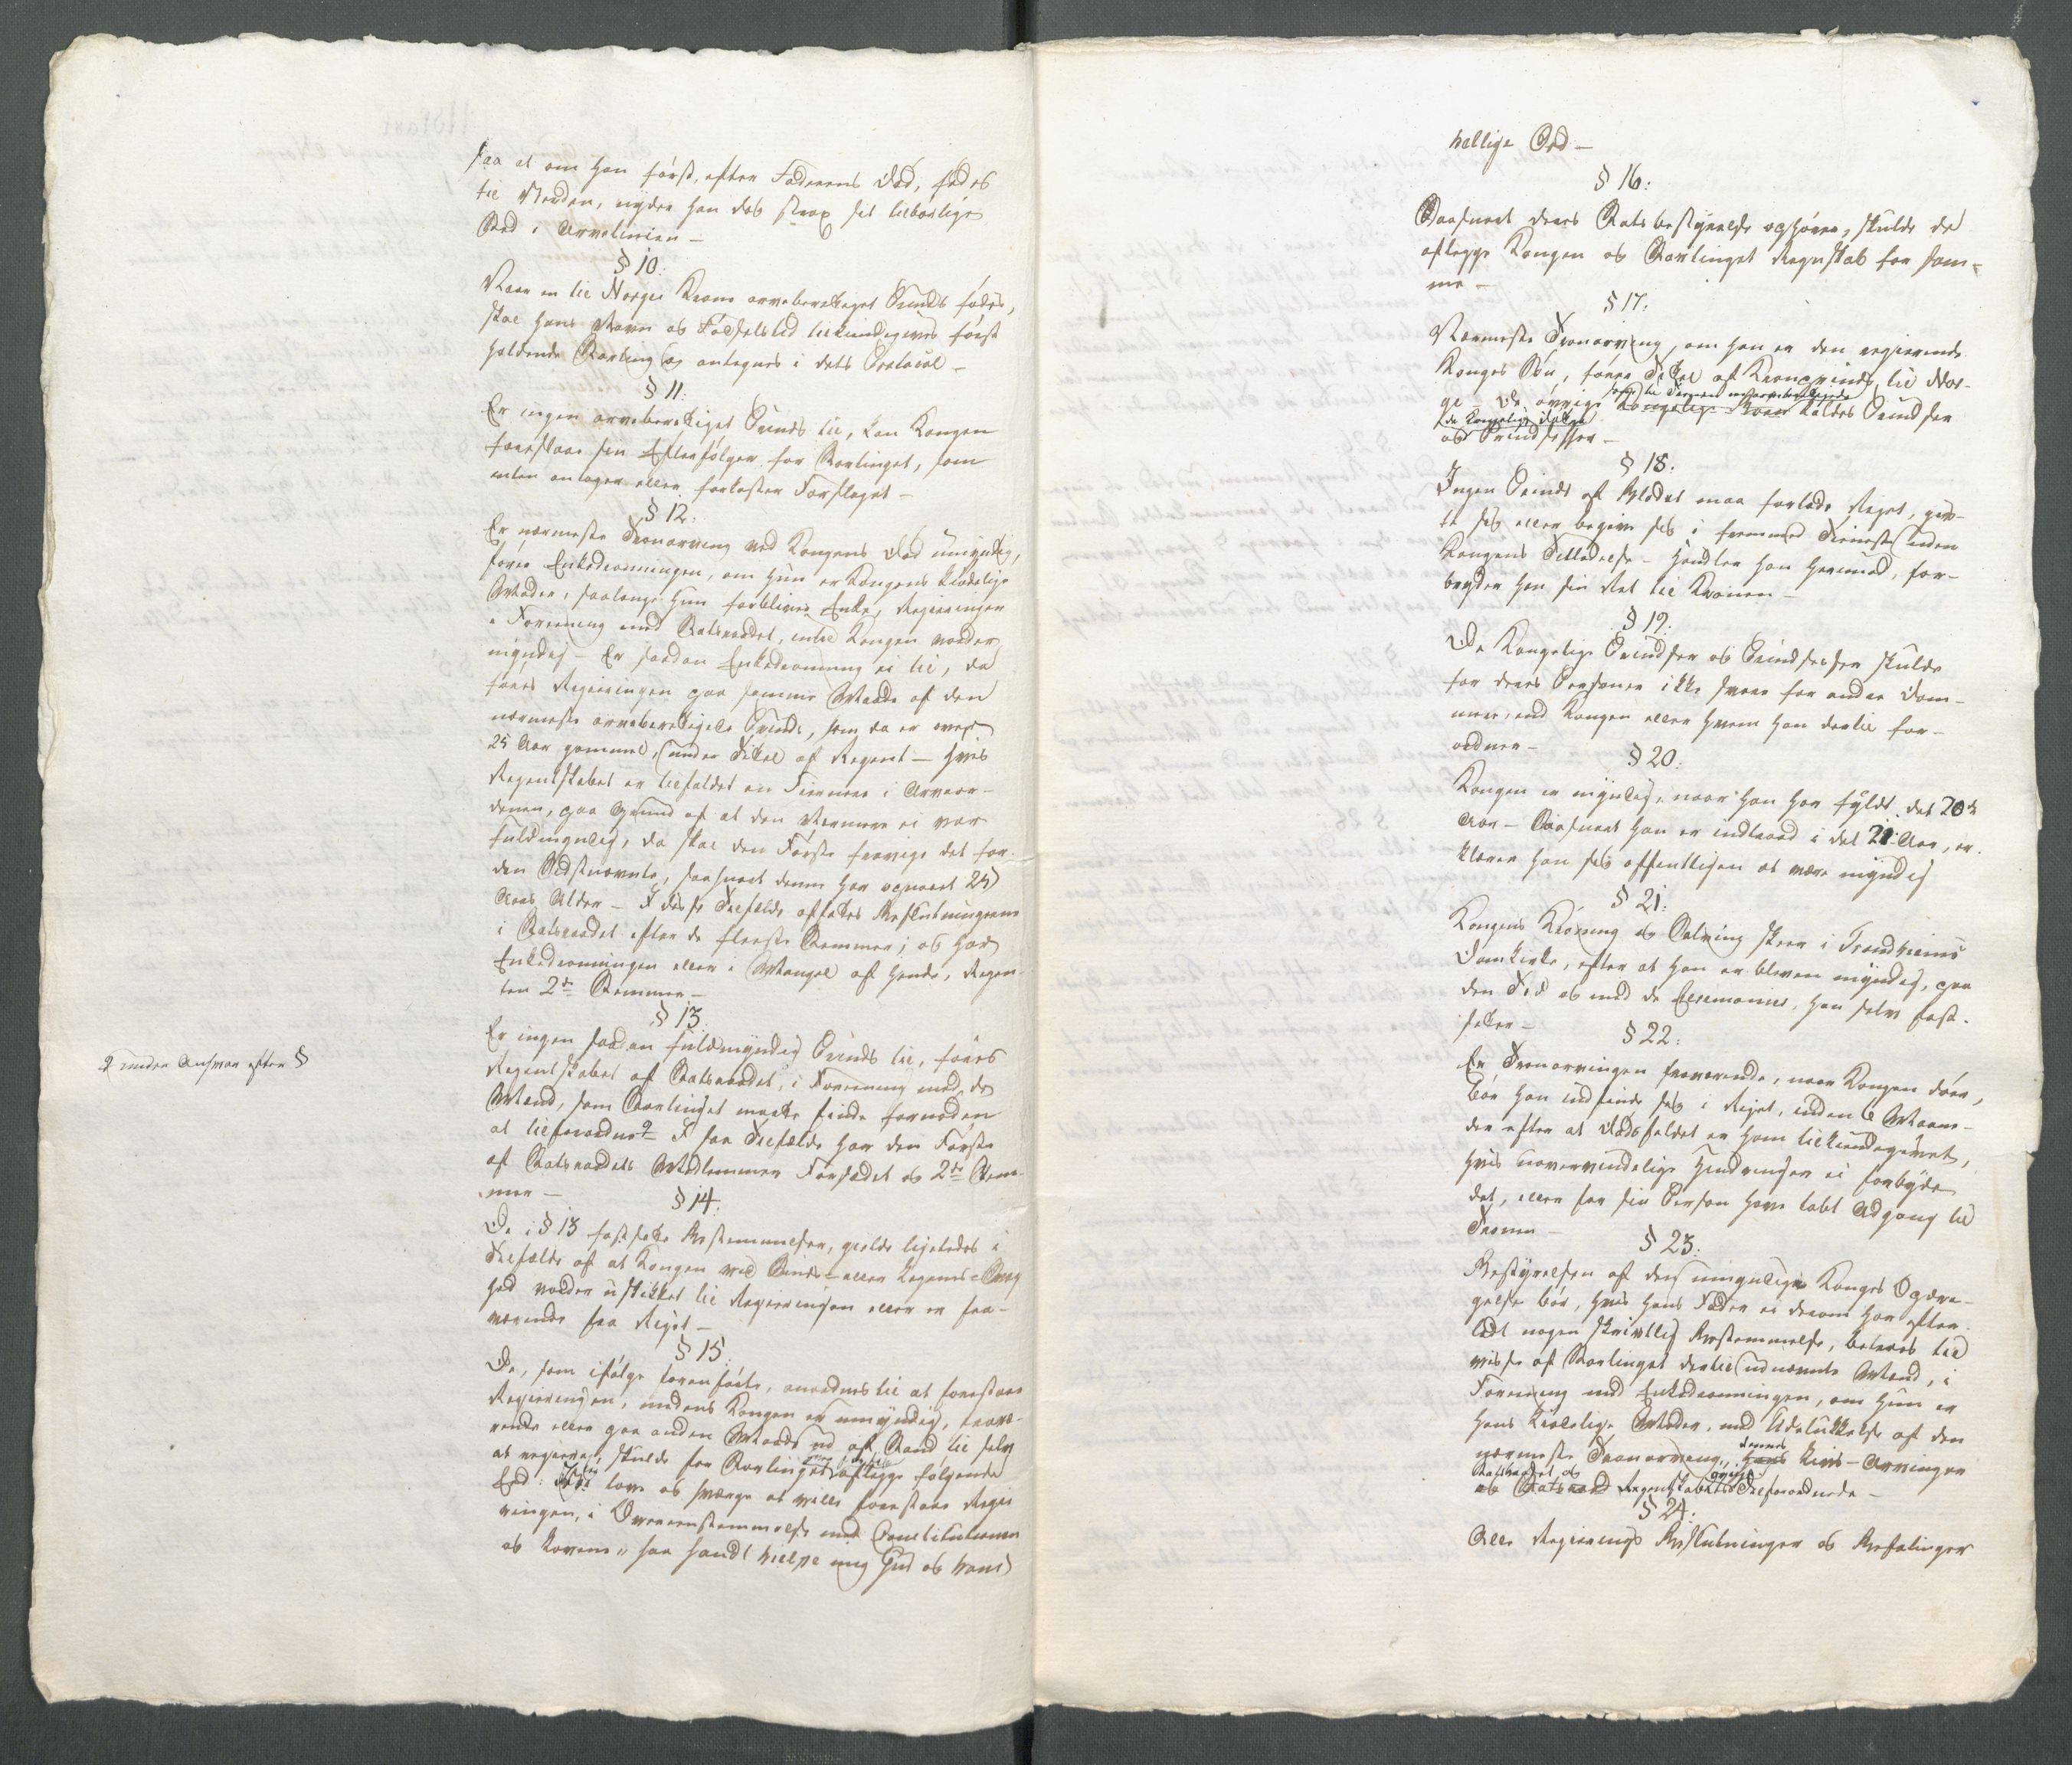 saa at om han først, efter Faderens Død, fødes
til Verden, nyder han dog strax sit tilbørlige
Sted i Arvelinien –
§ 10.
Naar en til Norges Krone arveberettiget Prinds fødes,
skal hans Navn og Fødselstid tilkiendegives først
holdende Storting og antegnes i dets Protocol –
§ 11:
Er ingen arveberettiget Prinds til, kan Kongen
foreslaae sin Efterfølger for Stortinget, som
enten antager eller forkaster Forslaget –
§ 12:
Er nærmeste Tronarving ved Kongens Død umyndig,
fører Enkedronningen, om hun er Kongens kiødelige
Moder, saalænge hun forbliver Enke, Regieringen
i Forening med Statsraadet, indtil Kongen vorder
myndig – Er saadan Enkedronning ei til, da
føres Regieringen paa samme Maade af den
nærmeste arveberettigede Prinds, som da er over
25 Aar gammel, under Titel af Regent – Hvis
Regentskabet er tilfaldet en Fiernere i Arveor-
denen, paa Grund af at den Nærmere ei var
fuldmyndig, da skal den Første fravige det for
den Sidstnævnte, saasnart denne har opnaaet 25
Aars Alder – I disse Tilfælde affattes Beslutningerne
i Statsraadet efter de fleeste Stemmer; og har
Enkedronningen eller i Mangel af hende, Regen-
ten 2de Stemmer –
§ 13.
Er ingen saadan fuldmyndig Prinds til, føres
Regentskabet af Statsraadet, i Forening med de
Mænd, som Stortinget maatte finde fornøden
at tilforordne I saa Tilfælde har den Første
af Statsraadets Medlemmer Forsædet og 2de Stem-
mer –
under Ansvar efter §
§ 14.
De i § 13 fastsatte Bestemmelser, gielde ligeledes i
Tilfælde af at Kongen ved Sinds- eller Legems-Svag
hed vorder uskikket til Regieringen eller er fra-
værende fra Riget –
§ 15.
De, som ifølge foranførte, anordnes til at forestaae
Regieringen, medens Kongen er umyndig, fravæ-
rende eller paa anden Maade ud af Stand til selv
at regiere, skulde for Stortinget aflægge følgende
Eed: love og sværge at ville forestaae Regie
ringen, i Overeenstemmelse med Constitutionen
og Lovene, saa sandt hielpe mig Gud og hans
hellige Ord –
§ 16:
Saasnart deres Statsbestyrelse ophører, skulde de
aflægge Kongen og Stortinget Regnskab for sam-
me –
§ 17:
Nærmeste Tronarving, om han er den regierende
Konges Søn, fører Titel af Kronprinds til Nor-
ge – De øvrige Kongelige Børn kaldes Prindser
og Prindsesser –
§ 18:
Ingen Prinds af Blodet maa forlade Riget, gif-
te sig eller begive sig i fremmed Tieneste uden
Kongens Tilladelse – Handler han herimod, for-
bryder han sin Ret til Kronen –
§ 19:
De Kongelige Prindser og Prindsesser skulde
for deres Personer ikke svare for andre Dom-
mere, end Kongen eller hvem han dertil for-
ordner –
§ 20:
Kongen er myndig, naar han har fyldt det 20de
Aar – Saasnart han er indtraadt i det 21 Aar, er-
klærer han sig offentligen at være myndig
§ 21:
Kongens Kroning og Salving skeer i Trondhiems
Domkirke, efter at han er bleven myndig, paa
den Tid og med de Ceremonier, han selv fast-
sætter –
§ 22:
Er Tronarvingen fraværende, naar Kongen døer,
bør han indfinde sig i Riget, inden 6 Maane-
der efter at Dødsfaldet er ham tilkiendegivet,
hvis uovervindelige Hindringer ei forbyde
det, eller for sin Person have tabt Adgang til
Tronen –
§ 23:
Bestyrelsen af den umyndige Konges Opdra-
gelse bør, hvis hans Fader ei derom har efter-
ladt nogen skrivtlig Bestemmelse, betroes til
visse af Stortinget dertil udnævnte Mænd, i
Forening med Enkedronningen, om hun er
hans kiødelige Moder, med Udelukkelse af den
nærmeste Tronarving, dennes hans Livs-Arvinger
Statsraadet og
og Statsraad Regentskabets øvrige Tilforordnede –
§ 24:
Alle Regierings Beslutninger og Befalinger